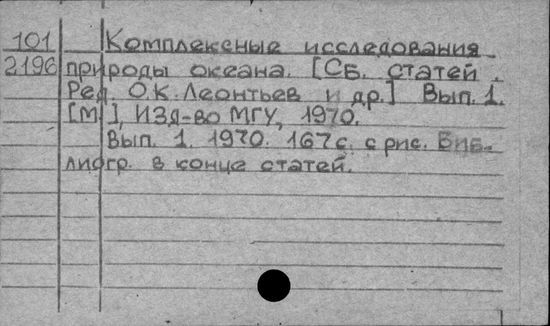 101 Комплексные исследования
2196 природы океана. [Сб. статей.
Ред. О.К. Леонтьев и др.] Вып. 1.
[М], Изд-во МГУ, 1970.
Вып. 1. 1970. 167 с. с рис. Биб-
лиогр. в конце статей.